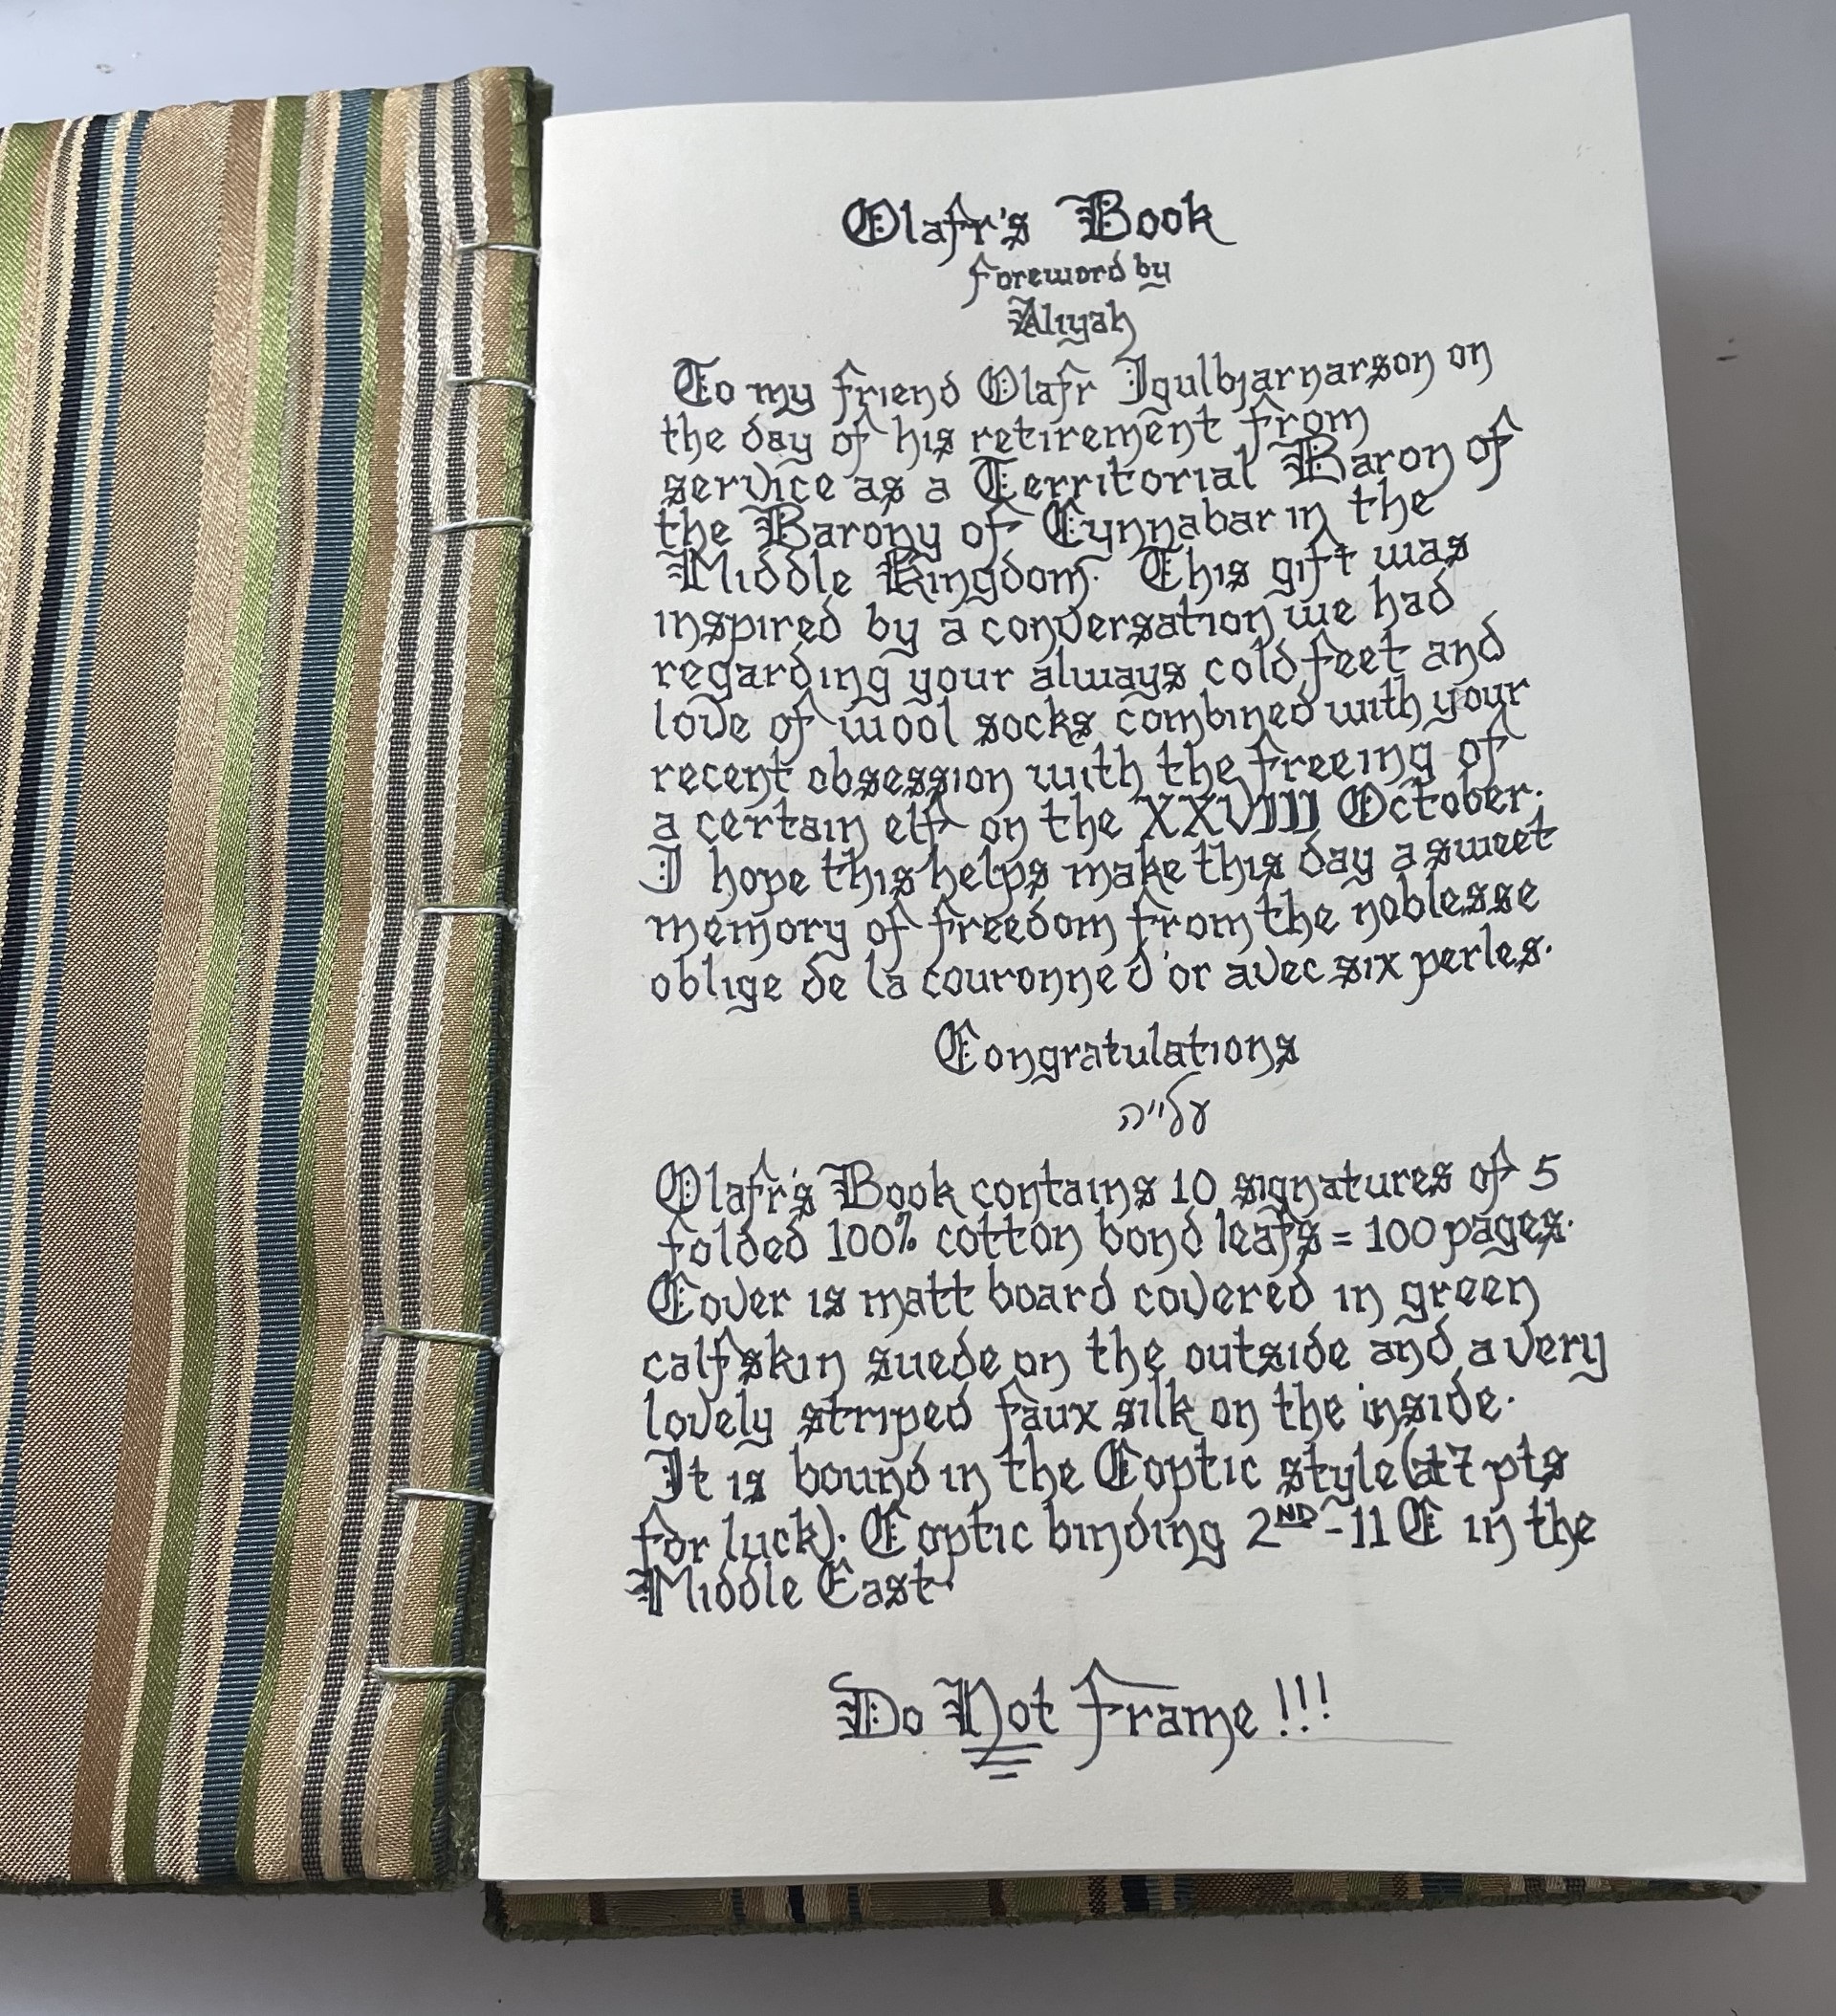 Olafr's Book
Foreword by
Aliyah
To my friend Olafr Igulbjarnarson on
the day of his retirement from
service as a Territorial Baron of
the Barony of Cynnabar in the
Middle Kingdom. This gift was
inspired by a conversation we had
regarding your always cold feet and
love of wool socks combined with your
recent obsession with the freeing of
a certain elf on the XXVIII October.
I hope this helps make this day a sweet
memory of freedom from the noblesse
oblige de la couronne d'or avec six perles.
Congratulations
עלייה
Olafr's Book contains 10 signatures of 5
folded 100% cotton bond leafs = 100 pages.
Cover is matt board covered in green
calfskin suede on the outside and a very
lovely striped faux silk on the inside.
It is bound in the Coptic style (at 7 pts
for luck). Coptic binding 2ND-11 C in the
Middle East.
Do Not Frame!!!